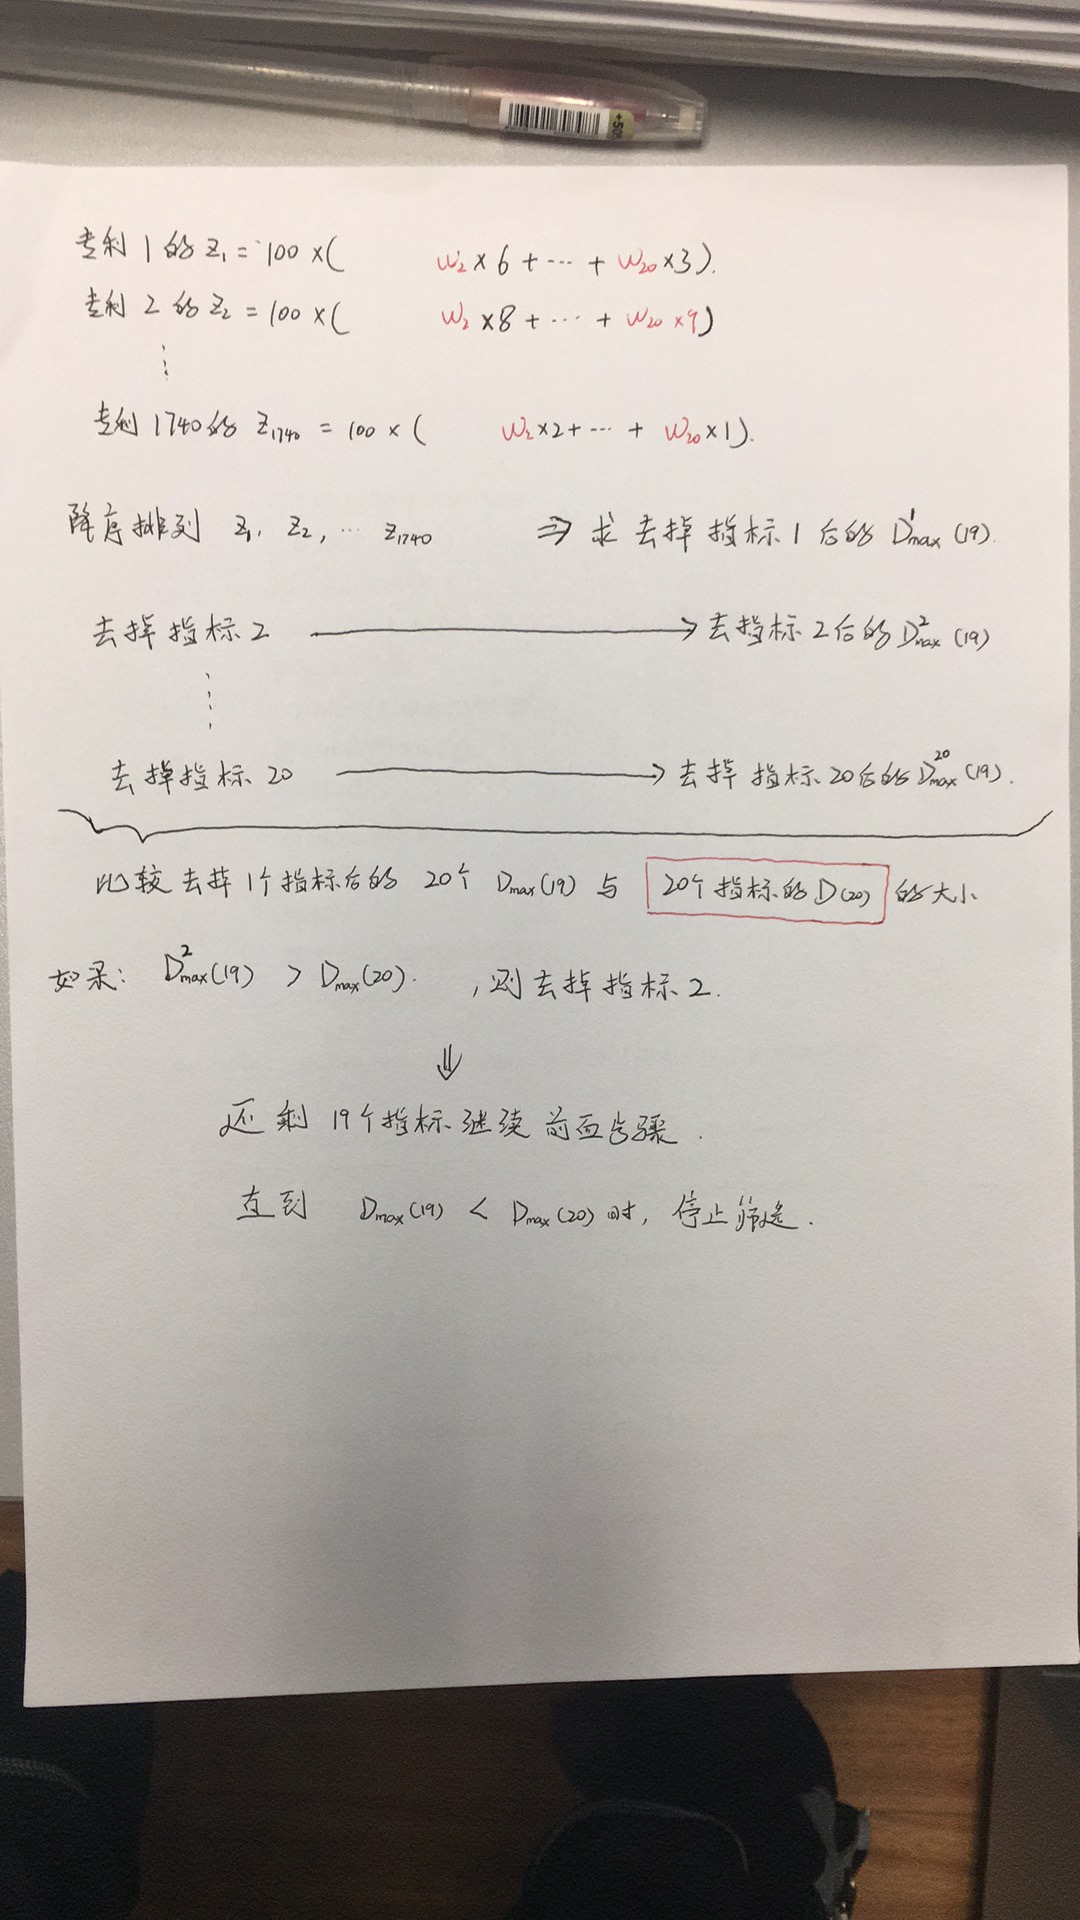 +50%
专利 1 的 Z₁ = 100 ×( W₂ × 6 + ··· + W₂₀ × 3).
专利 2 的 Z₂ = 100 ×( W₂ × 8 + ··· + W₂₀ × 9)
⋮
专利 1740 的 Z₁₇₄₀ = 100 × ( W₂ × 2 + ··· + W₂₀ × 1).
降序排列 Z₁, Z₂, ··· Z₁₇₄₀ ⇒ 求去掉指标 1 后的 D¹max (19).
去掉指标 2 ⟶ 去指标 2 后的 D²max (19)
⋮
去掉指标 20 ⟶ 去掉指标 20 后的 D²⁰max (19).
比较去掉 1个指标后的 20个 Dmax(19) 与 20个指标的 D(20) 的大小
如果: D²max(19) > Dmax(20). , 则去掉指标 2.
⇓
还剩 19个指标继续前面步骤.
直到 Dmax(19) < Dmax(20) 时, 停止筛选.